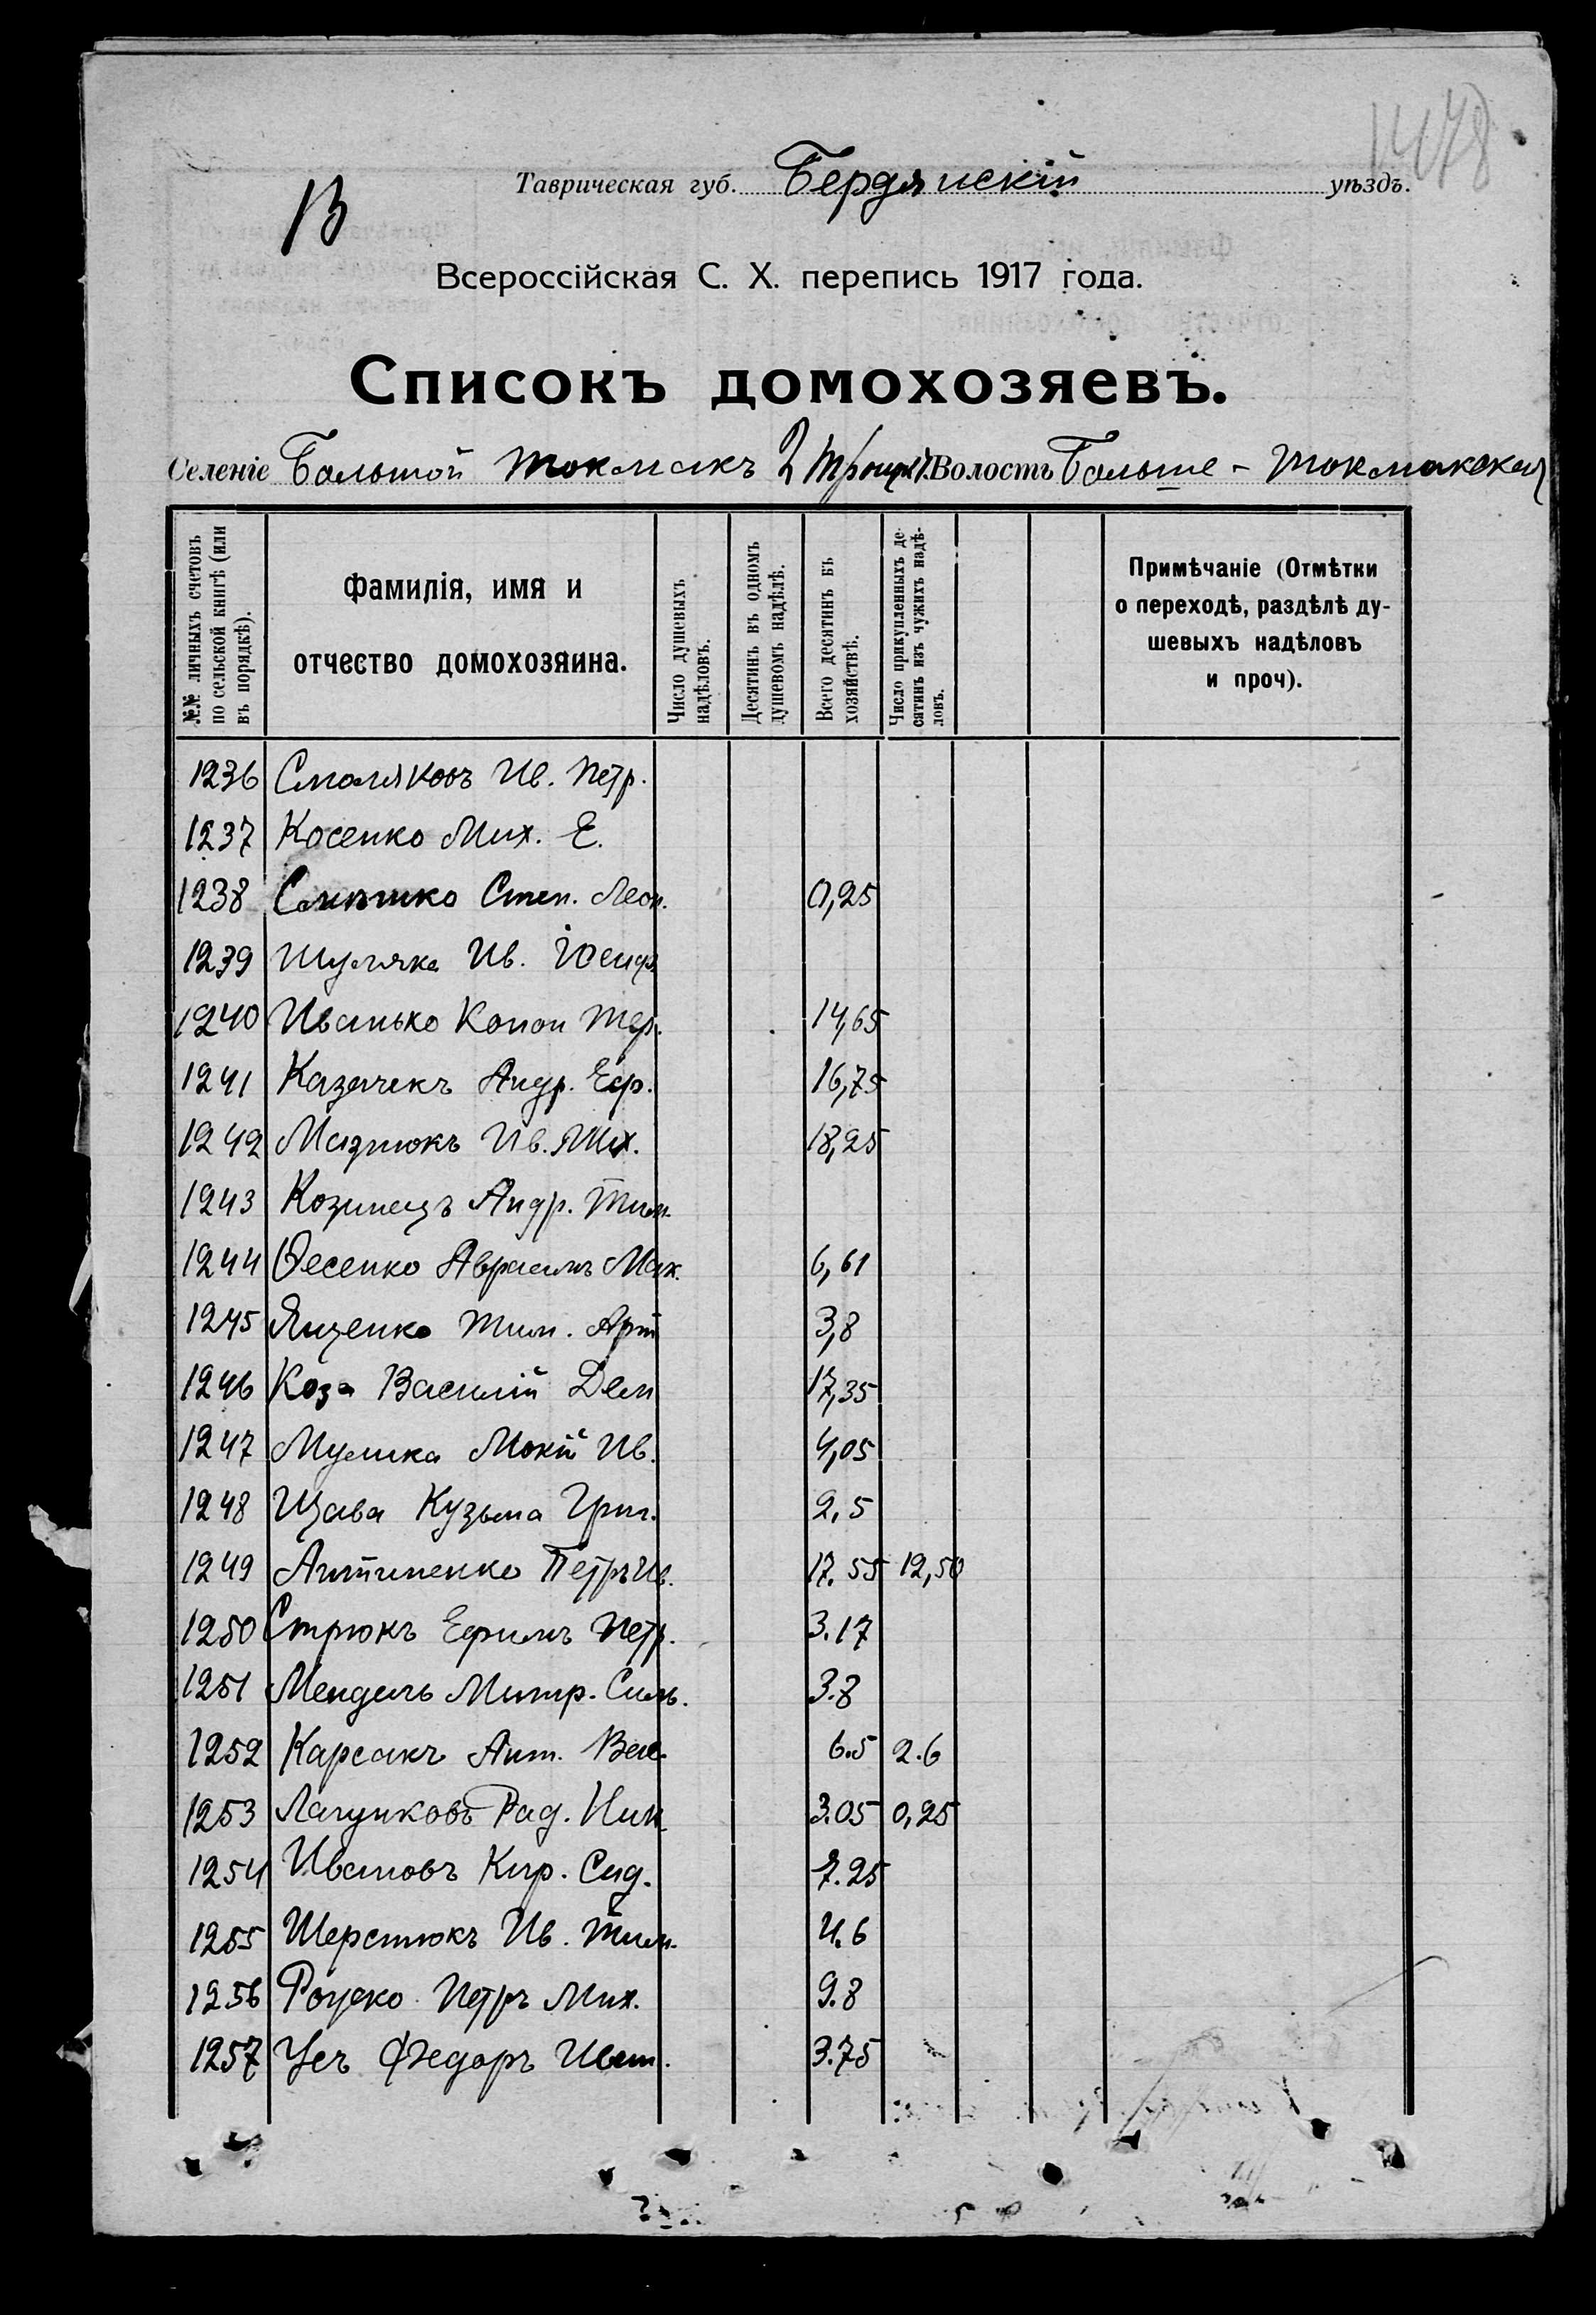 1478
Таврическая губ. Бердянскій уѣздъ.
13
Всероссійская С. Х. перепись 1917 года.
Списокъ домохозяевъ.
Селеніе Большой Токмакъ 2 Волость Больше-Токмакская
№№ личныхъ счетовъ по сельской книгѣ (или въ порядкѣ).
Фамилія, имя и отчество домохозяина.
Число душевыхъ надѣловъ.
Десятинъ въ одномъ душевомъ надѣлѣ.
Всего десятинъ въ хозяйствѣ.
Число прикупленныхъ десятинъ изъ чужихъ надѣловъ.
Примѣчаніе (Отмѣтки о переходѣ, раздѣлѣ душевыхъ надѣловъ и проч).
1236 Смоляковъ Ив. Петр.
1237 Косенко Мих. Е.
1238 Степ. Леон. 0,25
1239 Шуляка Ив. Іосиф
1240 Иванько Конон Тер. 14,65
1241 Казачекъ Андр. Еф. 16,75
1242 Мазнюкъ Ив. Мих. 18,25
1243 Козинецъ Андр. Тим.
1244 Фесенко Авраамъ Мак. 6,61
1245 Яценко Тим. Арт 3,8
1246 Коза Василій Дем 17,35
1247 Мулика Мокій Ив. 4,05
1248 Щава Кузьма Григ. 2,5
1249 Антипенко Петръ Ив. 17.55 12,50
1250 Стрюкъ Ефимъ Петр. 3.17
1251 Мендель Митр. Силь. 3.8
1252 Карсакъ Ант. Вас. 6.5 2.6
1253 Лагунковъ Рад. Ник 3.05 0,25
1254 Ивановъ Кир. Сид. 7.25
1255 Шерстюкъ Ив. Тим. 4.6
1256 Роцеко Петръ Мих. 9.8
1257 Усъ Федоръ Иван. 3.75